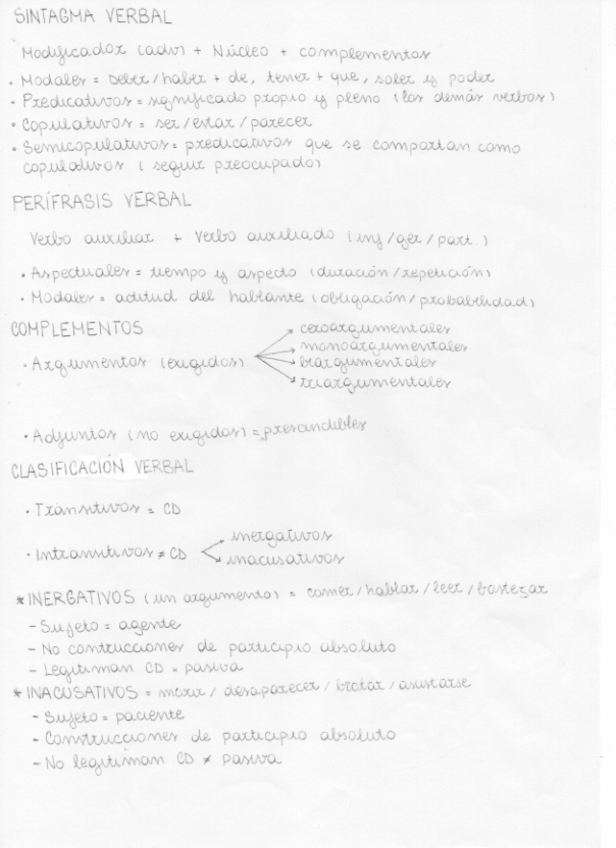 SINTAGMA VERBAL
Modificador (adv) + Núcleo + complementos
• Modales = deber/haber + de, tener + que, soler y poder
• Predicativos = significado propio y pleno (los demás verbos)
• Copulativos = ser/estar/parecer
• Semicopulativos = predicativos que se comportan como
copulativos (seguir preocupado)
PERÍFRASIS VERBAL
Verbo auxiliar + Verbo auxiliado (inf/ger/part.)
• Aspectuales = tiempo y aspecto (duración/repetición)
• Modales = actitud del hablante (obligación/probabilidad)
COMPLEMENTOS
• Argumentos (exigidos)
ceroargumentales
monoargumentales
biargumentales
triargumentales
• Adjuntos (no exigidos) = prescindibles
CLASIFICACIÓN VERBAL
• Transitivos = CD
• Intransitivos ≠ CD
inergativos
inacusativos
* INERGATIVOS (un argumento) = comer/hablar/leer/bostezar
- Sujeto = agente
- No construcciones de participio absoluto
- Legitiman CD = pasiva
* INACUSATIVOS = morir/desaparecer/brotar/asustarse
- Sujeto = paciente
- Construcciones de participio absoluto
- No legitiman CD ≠ pasiva